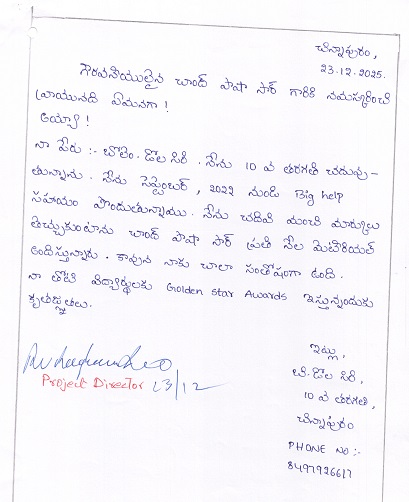 చిన్నాపురం,
23.12.2025.
గౌరవనీయులైన చాంద్ పాషా సార్ గారికి నమస్కరించి
వ్రాయునది ఏమనగా !
అయ్యా !
నా పేరు :- బొలెం. డొల సిరి. నేను 10 వ తరగతి చదువు-
తున్నాను. నేను సెప్టెంబర్, 2022 నుండి Big help
సహాయం పొందుతున్నాము. నేను చదివి మంచి మార్కులు
తెచ్చుకుంటాను చాంద్ పాషా సార్ ప్రతి నెల మెటిరియల్
అందిస్తున్నారు. కావున నాకు చాలా సంతోషంగా ఉంది.
నా తోటి విద్యార్థులకు Golden star Awards ఇస్తున్నందుకు
కృతజ్ఞతలు.
Project Director 23/12
ఇట్లు,
బి. డొల సిరి,
10 వ తరగతి,
చిన్నాపురం
PHONE NO :-
8497926617